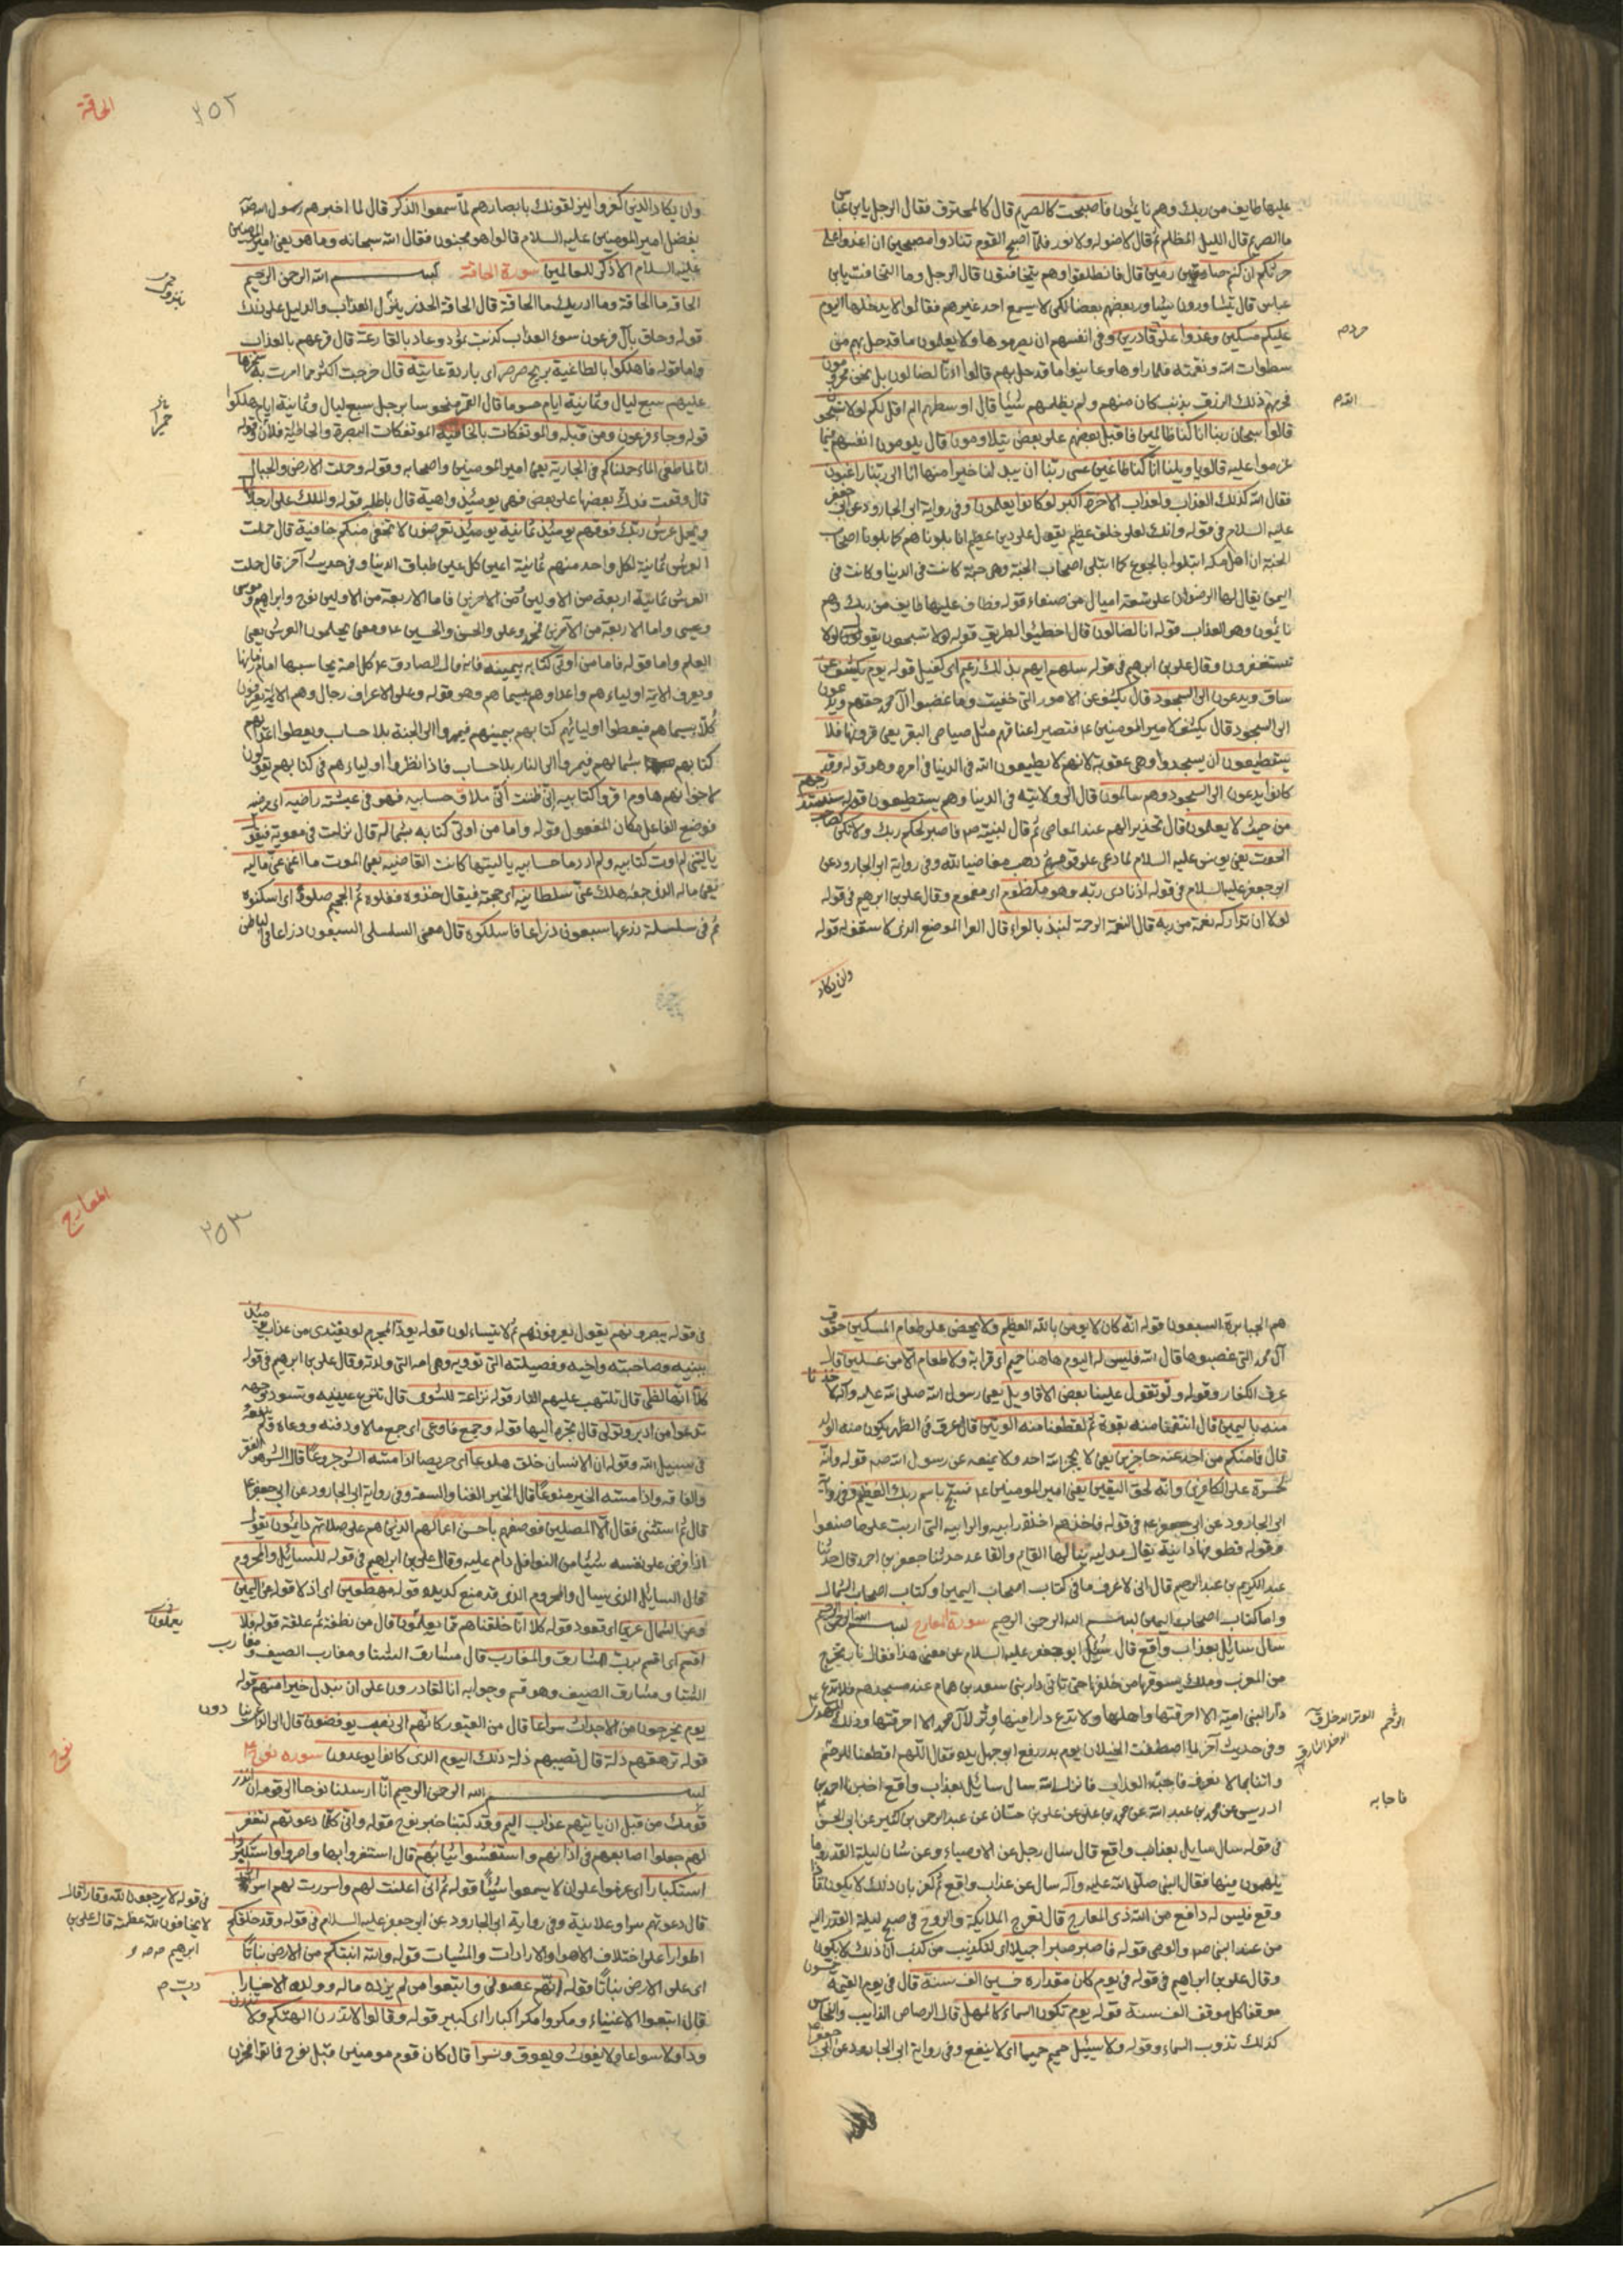 عليها طايف من ربك وهم نايمون فاصبحت كالصريم قال كالمحترق فقال الرجل يابن عباس
ما الصريم قال الليل المظلم ثم قال لا ضوء له ولا نور فلما اصبح القوم تنادوا مصبحين ان اغدوا على
حرثكم ان كنتم صارمين قال فانطلقوا وهم يتخافتون قال الرجل وما التخافت يابن
عباس قال يتشاورون يشاور بعضهم بعضا لكى لا يسمع احد غيرهم فقالوا لا يدخلنها اليوم
عليكم مسكين وغدوا على قادرين وفى انفسهم ان يصرموها ولا يعلمون ما قد حل بهم من
سطوات الله ونقمته فلما راوها وعاينوا ما قد حل بهم قالوا انا لضالون بل نحن محرومون
فحرمهم ذلك الرزق بذنب كان منهم ولم يظلمهم شيئا قال اوسطهم الم اقل لكم لولا تسبحون
قالوا سبحان ربنا انا كنا ظالمين فاقبل بعضهم على بعض يتلاومون قال يلومون انفسهم فيما
عزموا عليه قالوا يا ويلنا انا كنا طاغين عسى ربنا ان يبدلنا خيرا منها انا الى ربنا راغبون
فقال الله كذلك العذاب ولعذاب الاخرة اكبر لو كانوا يعلمون وفى رواية ابى الجارود عن ابى جعفر
عليه السلام فى قوله وانك لعلى خلق عظيم يقول على دين عظيم انا بلوناهم كما بلونا اصحاب
الجنة ان اهل مكة ابتلوا بالجوع كما ابتلى اصحاب الجنة وهى جنة كانت فى الدنيا وكانت فى
اليمن يقال لها الرضوان على تسعة اميال من صنعاء قوله وطاف عليها طايف من ربك وهم
نايمون وهو العذاب قوله انا لضالون قال اخطيئوا الطريق قوله لولا تسبحون يقول لولا
تستغفرون وقال على بن ابرهيم فى قوله سلهم ايهم بذلك زعيم اى كفيل قوله يوم يكشف عن
ساق ويدعون الى السجود قال يكشف عن الامور التى خفيت وما غصبوا آل محمد حقهم ويدعون
الى السجود قال يكشف لامير المومنين ع فتصير اعناقهم مثل صياصى البقر يعنى قرونها فلا
يستطيعون ان يسجدوا وهى عقوبة لانهم لا يطيعون الله فى الدنيا فى امره وهو قوله وقد
كانوا يدعون الى السجود وهم سالمون قال الى ولايته فى الدنيا وهم يستطيعون قوله سنستدرجهم
من حيث لا يعلمون قال تحذيرا لهم عند المعاصى ثم قال لنبيه ص فاصبر لحكم ربك ولا تكن كصاحب
الحوت يعنى يونس عليه السلام لما دعى على قومه ثم ذهب مغاضبا لله وفى رواية ابى الجارود عن
ابى جعفر عليه السلام فى قوله اذ نادى ربه وهو مكظوم اى مغموم وقال على بن ابرهيم فى قوله
لولا ان تداركه نعمة من ربه قال النعمة الرحمة لنبذ بالعراء قال العراء الموضع الذى لا سقف له قوله
وان يكاد
الحاقة
٢٥٢
وان يكاد الذين كفروا ليزلقونك بابصارهم لما سمعوا الذكر قال لما اخبرهم رسول الله ص
بفضل امير المومنين عليه السلام قالوا هو مجنون فقال الله سبحانه وما هو يعنى امير المومنين
عليه السلام الا ذكر للعالمين سورة الحاقة بسم الله الرحمن الرحيم
الحاقة ما الحاقة وما ادريك ما الحاقة قال الحاقة الحذر ينزل العذاب والدليل على ذلك
قوله وحاق بآل فرعون سوء العذاب كذبت ثمود وعاد بالقارعة قال قرعهم بالعذاب
واما قوله فاهلكوا بالطاغية بريح صرصر اى باردة عاتية قال خرجت اكثر مما امرت به سخرها
عليهم سبع ليال وثمانية ايام حسوما قال القمر منحوسا برجل سبع ليال وثمانية ايام حتى هلكوا
قوله وجاء فرعون ومن قبله والموتفكات بالخاطئة الموتفكات البصرة والخاطئة فلان وقوله
انا لما طغى الماء حملناكم فى الجارية يعنى امير المومنين واصحابه وقوله وحملت الارض والجبال
قال وقعت فدك بعضها على بعض فهى يومئذ واهية قال باطله قوله والملك على ارجائها
ويحمل عرش ربك فوقهم يومئذ ثمانية يومئذ تعرضون لا تخفى منكم خافية قال حملت
العرش ثمانية لكل واحد منهم ثمانية اعين كل عين طباق الدنيا وفى حديث آخر قال حملت
العرش ثمانية اربعة من الاولين واربعة من الاخرين فاما الاربعة من الاولين نوح وابراهيم وموسى
وعيسى واما الاربعة من الآخرين محمد وعلى والحسن والحسين ع ومعنى يحملون العرش يعنى
العلم واما قوله فاما من اوتى كتابه بيمينه فانه قال الصادق ع كل امة يحاسبها امام زمانها
ويعرف الايمة اولياءهم واعداءهم بسيماهم وهو قوله وعلى الاعراف رجال وهم الايمة يعرفون
كلا بسيماهم فيعطوا اوليائهم كتابهم بيمينهم فيمروا الى الجنة بلا حساب ويعطوا اعدائهم
كتابهم بشمالهم فيمروا الى النار بلا حساب فاذا نظروا اولياءهم فى كتابهم يقولون
لاخوانهم هاوم اقروا كتابيه انى ظننت انى ملاق حسابيه فهو فى عيشة راضية اى مرضية
فوضع الفاعل مكان المفعول قوله واما من اوتى كتابه بشماله قال نزلت فى معوية فيقول
يا ليتنى لم اوت كتابيه ولم ادر ما حسابيه يا ليتها كانت القاضية يعنى الموت ما اغنى عنى ماليه
يعنى ماله الذى جمعه هلك عنى سلطانيه اى حجته فيقال خذوه فغلوه ثم الجحيم صلوه اى اسكنوه
ثم فى سلسلة ذرعها سبعون ذراعا فاسلكوه قال معنى السلسلة السبعون ذراعا فى الباطن
هم الجبابرة السبعون قوله انه كان لا يومن بالله العظيم ولا يحض على طعام المسكين حقوق
آل محمد التى غصبوها قال الله فليس له اليوم هاهنا حميم اى قرابة ولا طعام الا من غسلين قال
عرق الكفار وقوله ولو تقول علينا بعض الاقاويل يعنى رسول الله صلى الله عليه وآله لاخذنا
منه باليمين قال انتقمنا منه بقوة ثم لقطعنا منه الوتين قال عرق فى الظهر يكون منه الولد
قال فما منكم من احد عنه حاجزين يعنى لا يحجز الله احد ولا يمنعه عن رسول الله ص قوله وانه
لحسرة على الكافرين وانه لحق اليقين يعنى امير المومنين ع فسبح باسم ربك العظيم وفى رواية
ابى الجارود عن ابى جعفر ع فى قوله فاخذهم اخذة رابية والرابية التى اربت على ما صنعوا
وقوله قطوفها دانية يقال مدلية ينالها القايم والقاعد حدثنا جعفر بن احمد قال حدثنا
عبد الكريم بن عبد الرحيم قال انى لاعرف ما فى كتاب اصحاب اليمين وكتاب اصحاب الشمال
واما كتاب اصحاب اليمين بسم الله الرحمن الرحيم سورة المعارج بسم الله الرحمن الرحيم
سال سائل بعذاب واقع قال سئل ابو جعفر عليه السلام عن معنى هذا فقال نار يخرج
من المغرب وملك يسوقها من خلفها حتى تاتى دار بنى سعد بن همام عند مسجدهم فلا تدع
دارا لبنى امية الا احرقتها واهلها ولا تدع دارا فيها وتر لآل محمد الا احرقتها وذلك المهدى
وفى حديث آخر لما اصطفت الخيلان يوم بدر رفع ابو جهل يده فقال اللهم اقطعنا للرحم
واتانا بما لا نعرف فاجبه العذاب فانزل الله سال سايل بعذاب واقع اخبرنا احمد بن
ادريس عن محمد بن عبد الله عن محمد بن على عن على بن حسان عن عبد الرحمن بن كثير عن ابى الحسن ع
فى قوله سال سايل بعذاب واقع قال سال رجل عن الاوصياء وعن شان ليلة القدر وما
يلهمون فيها فقال النبى صلى الله عليه وآله سال عن عذاب واقع ثم كفر بان ذلك لا يكون فاذا
وقع فليس له دافع من الله ذى المعارج قال تعرج الملايكة والروح فى صبح ليلة القدر اليه
من عند النبى ص والوصى قوله فاصبر صبرا جميلا اى لتكذيب من كذب ان ذلك لا يكون
وقال على بن ابراهيم فى قوله فى يوم كان مقداره خمسين الف سنة قال فى يوم القيمة خمسون
موقفا كل موقف الف سنة قوله يوم تكون السماء كالمهل قال الرصاص الذايب والنحاس
كذلك تذوب السماء وقوله ولا يسئل حميم حميما اى لا ينفع وفى رواية ابى الجارود عن ابى جعفر
فاجابه
المعارج
٢٥٣
فى قوله يبصرونهم يقول يعرفونهم ثم لا يتساءلون قوله يود المجرم لو يفتدى من عذاب يومئذ
ببنيه وصاحبته واخيه وفصيلته التى تؤويه وهى امه التى ولدته وقال على بن ابرهيم فى قوله
كلا انها لظى قال تلتهب عليهم النار قوله نزاعة للشوى قال تنزع عينيه وتسود وجهه
تدعوا من ادبر وتولى قال تجره اليها قوله وجمع فاوعى اى جمع مالا ودفنه ووعاه فلم ينفقه
فى سبيل الله وقوله ان الانسان خلق هلوعا اى حريصا اذا مسه الشر جزوعا قال الشر هو الفقر
والفاقة واذا مسه الخير منوعا قال الخير الغنا والسعة وفى رواية ابى الجارود عن ابى جعفر ع
قال ثم استثنى فقال الا المصلين فوصفهم باحسن اعمالهم الذين هم على صلاتهم دايمون يقول
اذا فرض على نفسه شيئا من النوافل دام عليه وقال على بن ابراهيم فى قوله للسايل والمحروم
قال السايل الذى يسال والمحروم الذى قد منع كد يده قوله مهطعين اى اذلا قوله عن اليمين
وعن الشمال عزين اى قعود قوله كلا انا خلقناهم مما يعلمون قال من نطفة ثم علقة قوله فلا
اقسم اى اقسم برب المشارق والمغارب قال مشارق الشتا ومغارب الصيف ومغارب
الشتا ومشارق الصيف وهو قسم وجوابه انا لقادرون على ان نبدل خيرا منهم قوله
يوم يخرجون من الاجداث سراعا قال من القبور كانهم الى نصب يوفضون قال الى الداعى
قوله ترهقهم ذلة قال تصيبهم ذلة ذلك اليوم الذى كانوا يوعدون سورة نوح ع
بسم الله الرحمن الرحيم انا ارسلنا نوحا الى قومه ان انذر
قومك من قبل ان ياتيهم عذاب اليم وقد كتبنا خبر نوح قوله وانى كلما دعوتهم لتغفر
لهم جعلوا اصابعهم فى اذانهم واستغشوا ثيابهم قال استتروا بها واصروا واستكبروا
استكبارا اى عزموا على ان لا يسمعوا شيئا قوله ثم انى اعلنت لهم واسررت لهم اسرارا
قال دعوتهم سرا وعلانية وفى رواية ابى الجارود عن ابى جعفر عليه السلام فى قوله وقد خلقكم
اطوارا على اختلاف الاهوا والارادات والمشيات قوله والله انبتكم من الارض نباتا
اى على الارض نباتا قوله انهم عصونى واتبعوا من لم يزده ماله وولده الا خسارا
قال اتبعوا الاغنياء ومكروا مكرا كبارا اى كبير قوله وقالوا لا تذرن الهتكم ولا تذرن
ودا ولا سواعا ولا يغوث ويعوق ونسرا قال كان قوم مومنين قبل نوح فماتوا فحزن
نوح
فى قوله لا يرجعون لله وقارا قال
لا يخافون لله عظمة قال على بن
ابرهيم